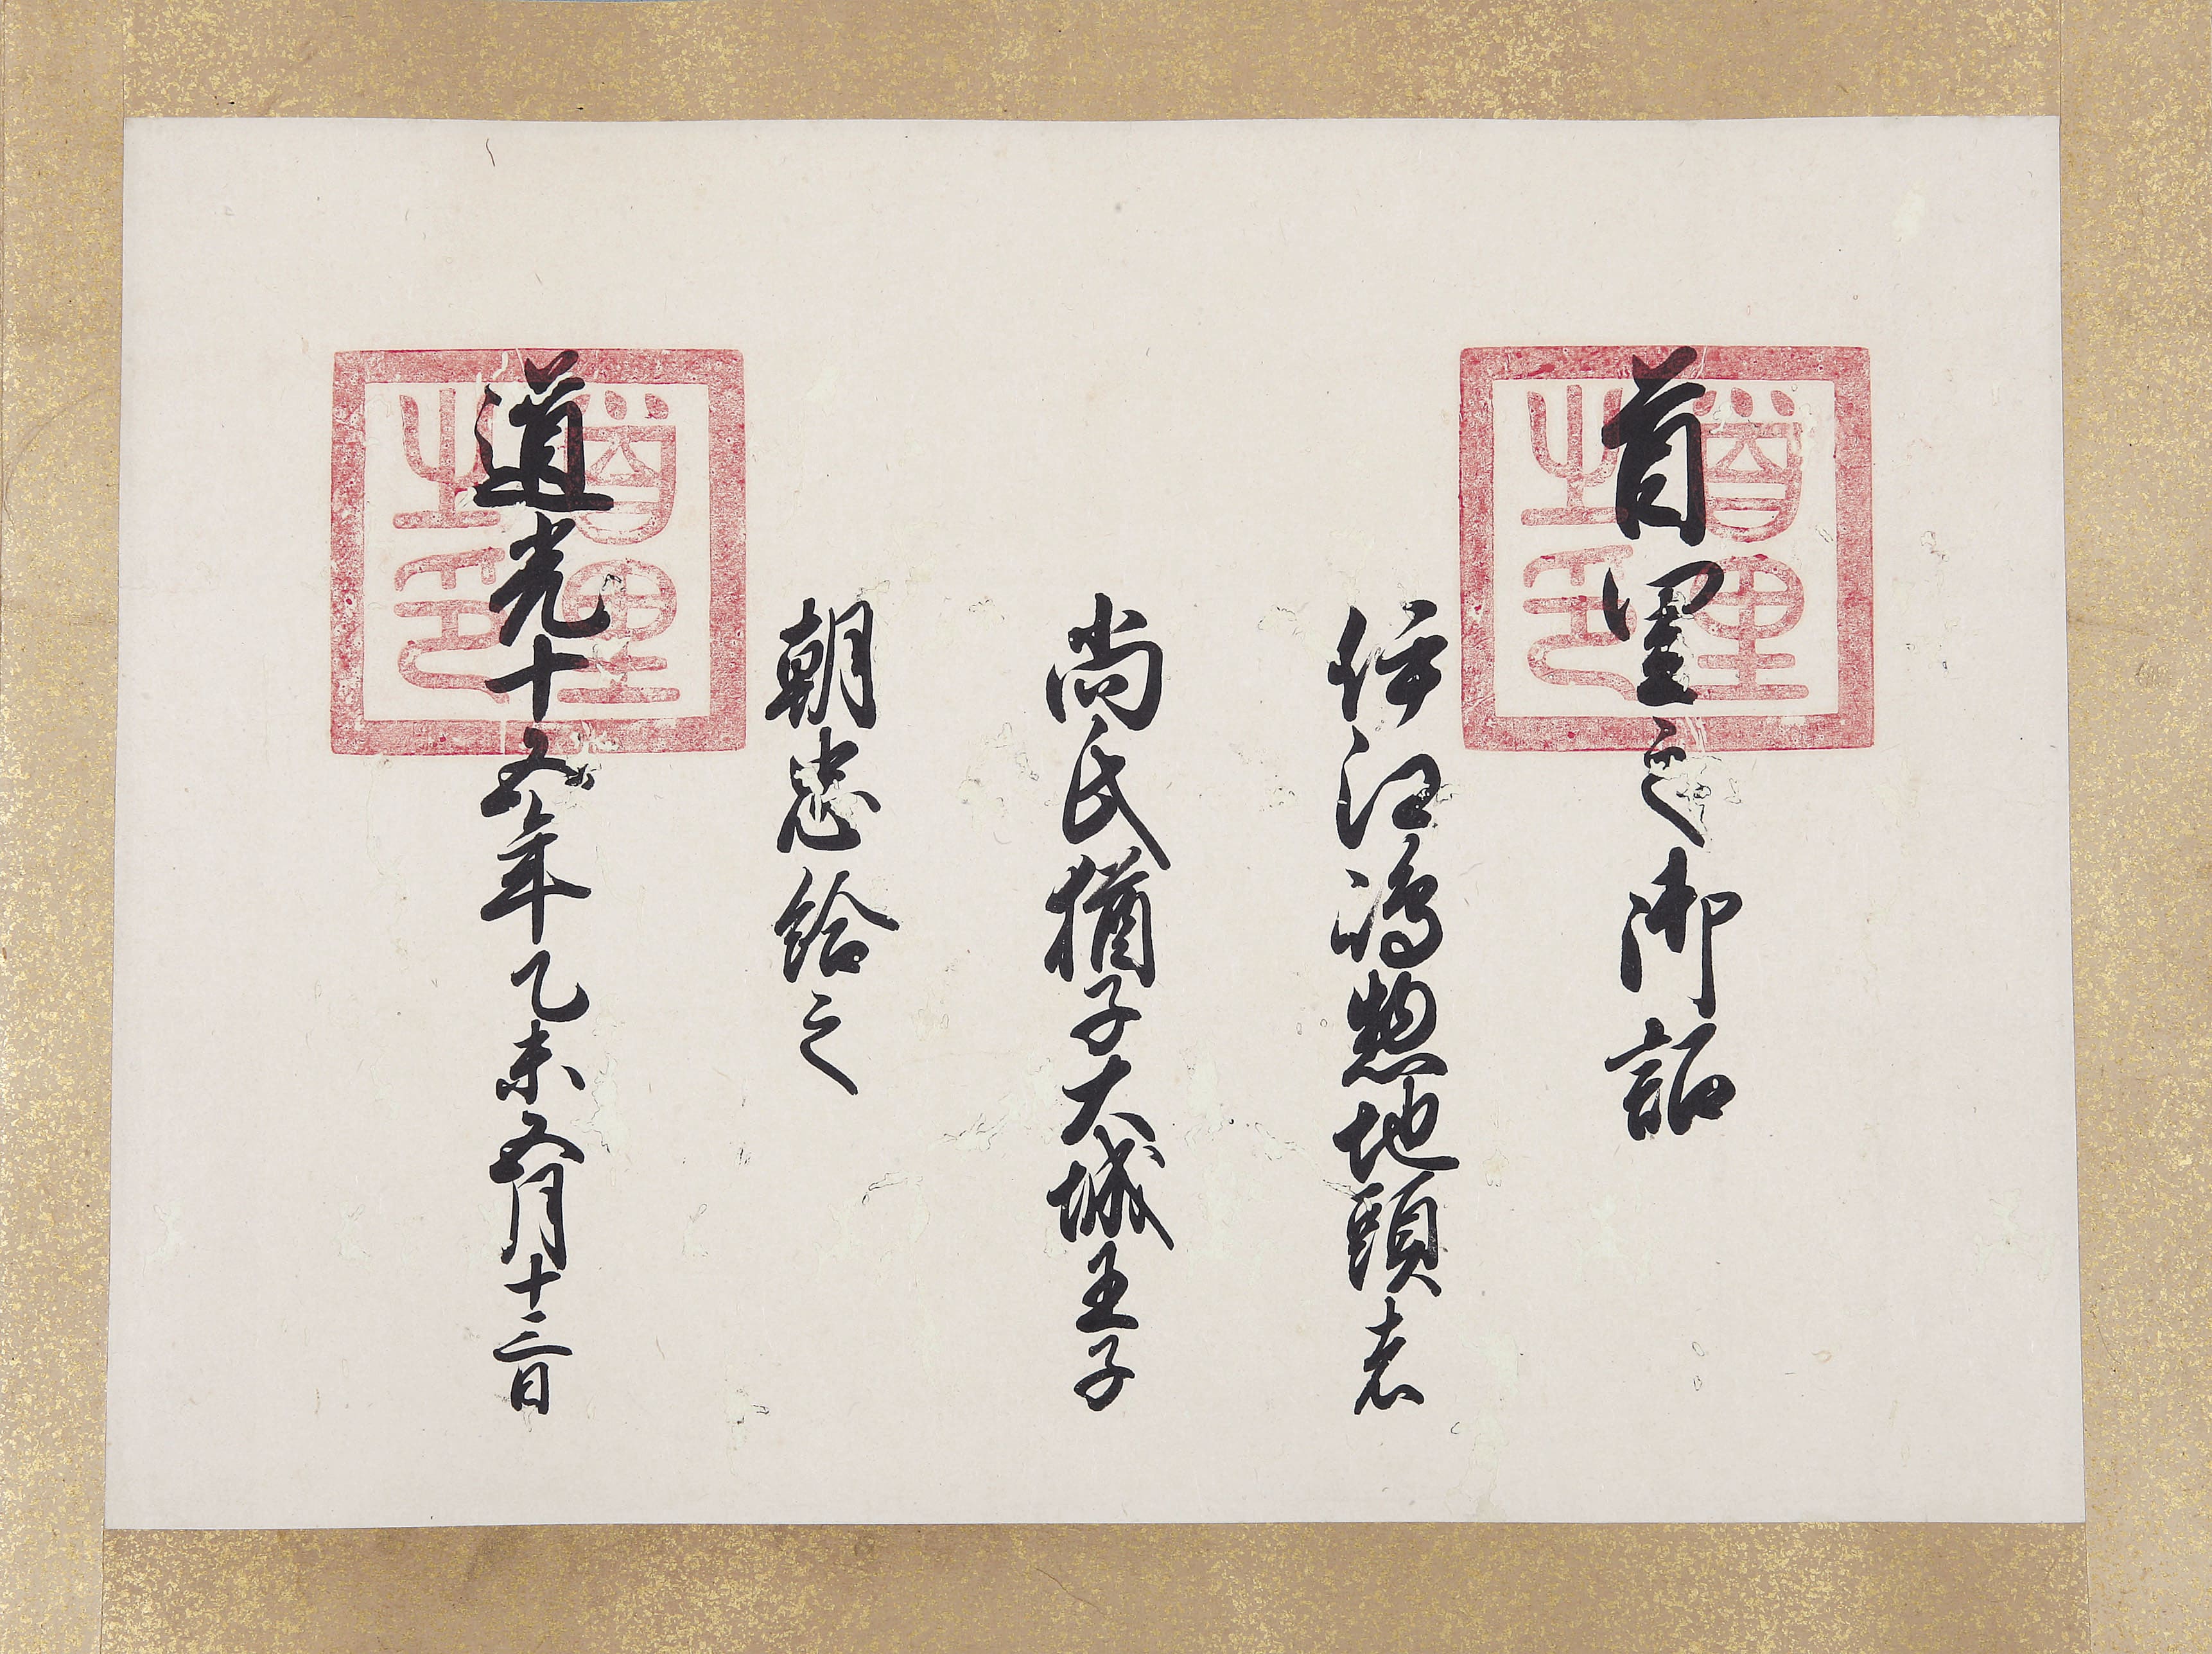 首里之御詔
伊江嶋惣地頭者
尚氏猶子大城王子
朝忠給之
道光十五年乙未五月十三日
首里之印
首里之印